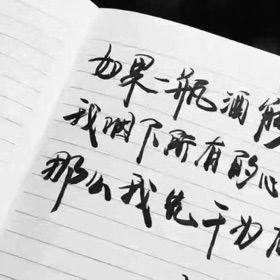 如果一瓶酒能
我咽下所有的心
那么我先干为